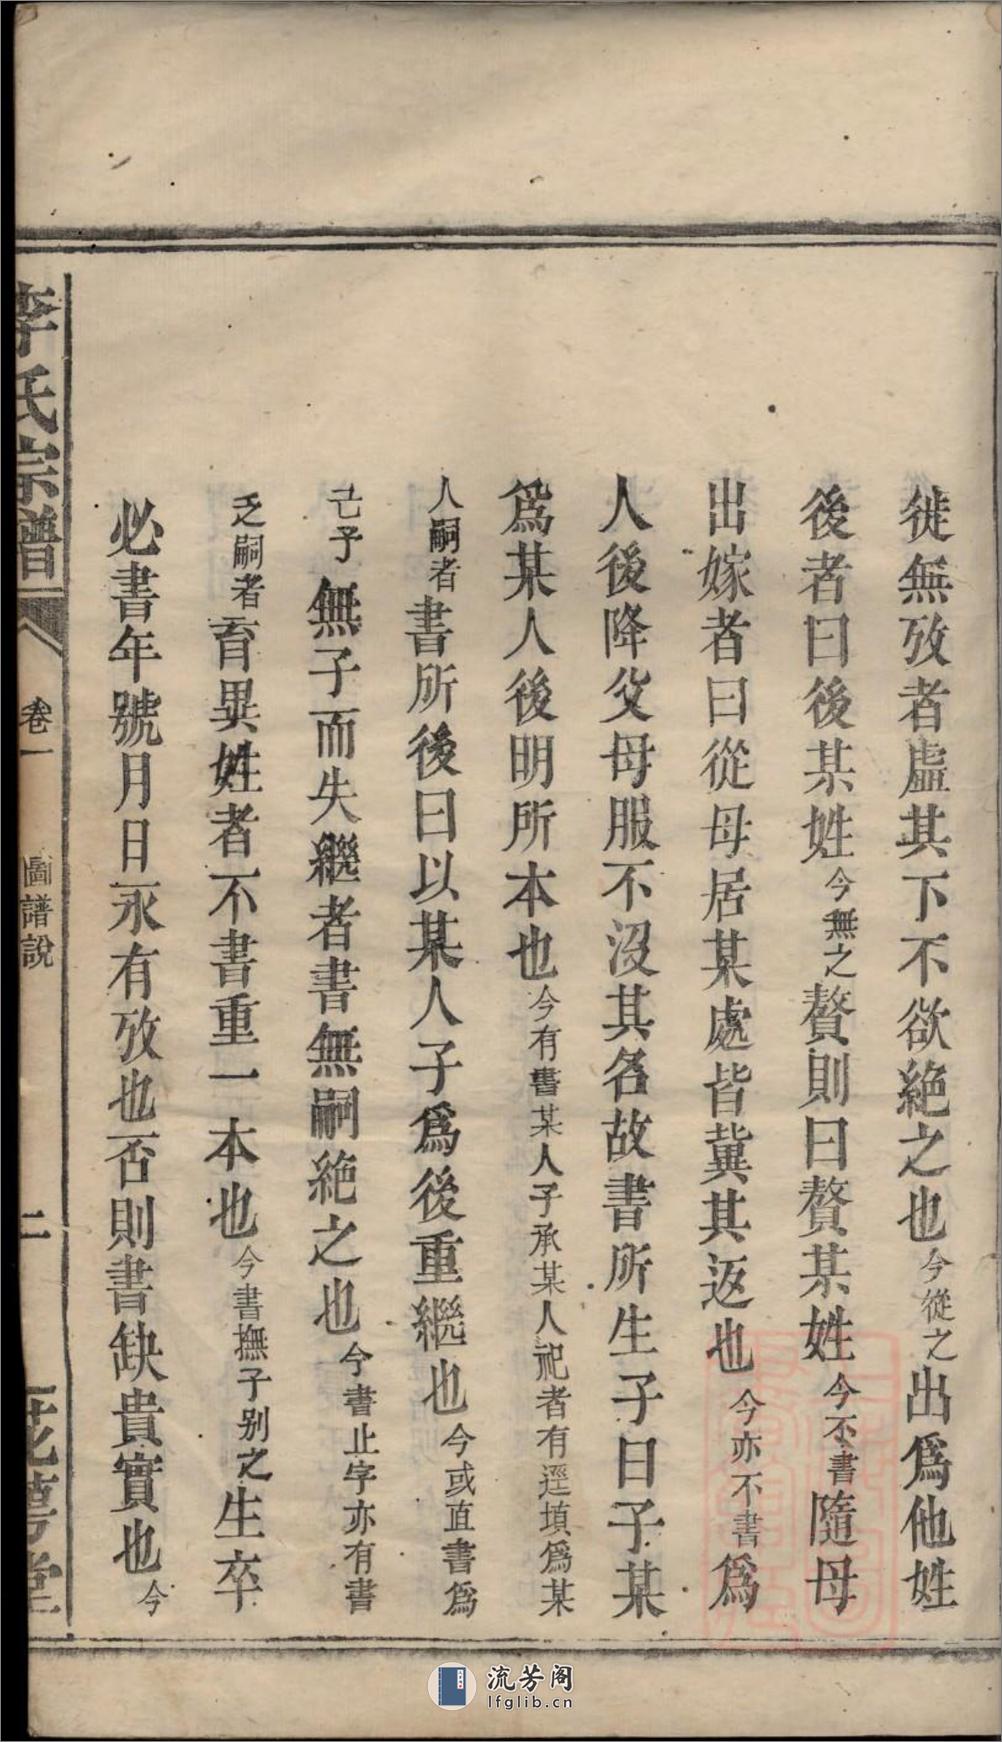 徙無攷者虛其下不欲絶之也今從之出爲他姓
後者曰後某姓今無之贅則曰贅某姓今不書隨母
出嫁者曰從母居某處皆冀其返也今亦不書爲
人後降父母服不沒其名故書所生子曰子某
爲某人後明所本也今有書某人子承某人祀者有逕填爲某
人嗣者書所後曰以某人子爲後重繼也今或直書爲
亡子無子而失繼者書無嗣絶之也今書止字亦有書
乏嗣者育異姓者不書重一本也今書撫子别之生卒
必書年號月日永有攷也否則書缺貴實也今
李氏宗譜
卷一
圖譜説
二
花萼堂
流芳阁
lfglib.cn